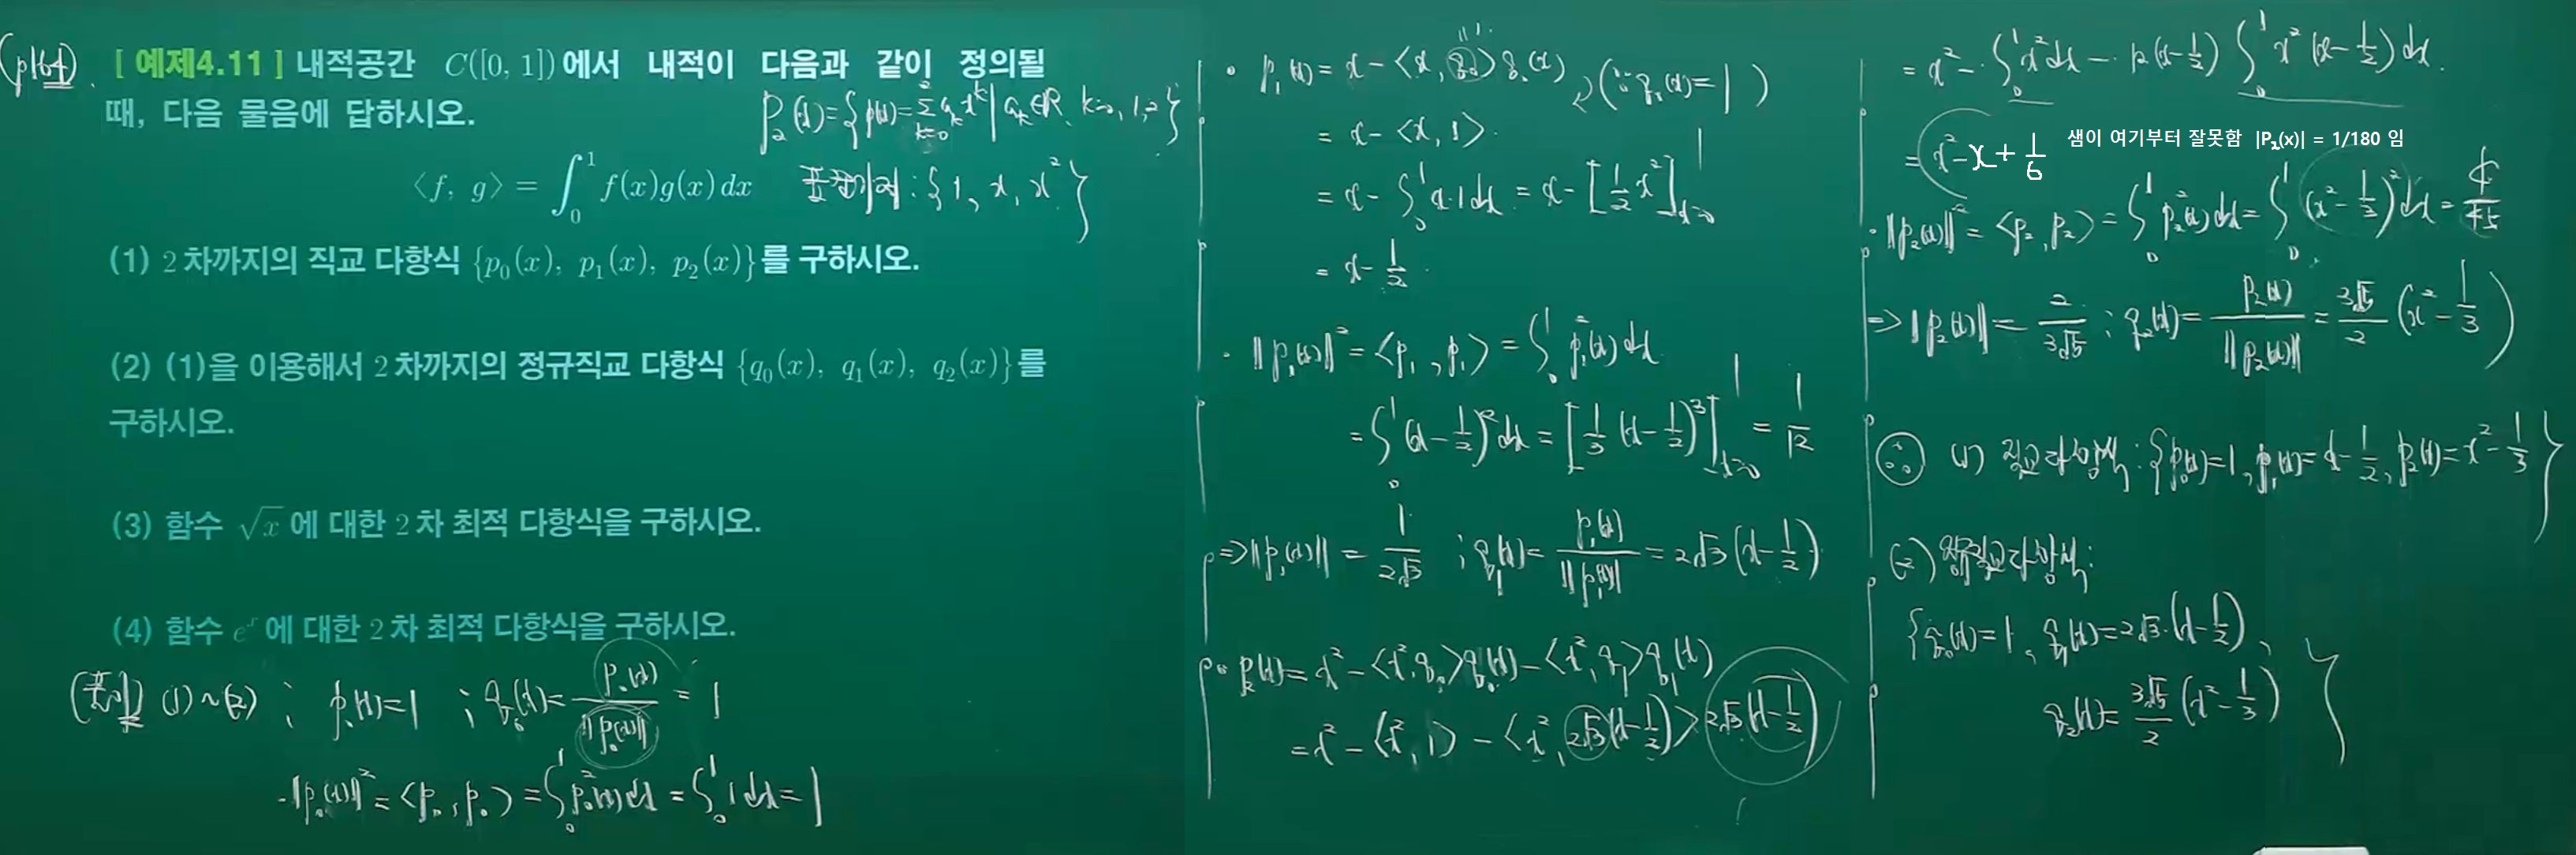 (p164)
[ 예제4.11 ] 내적공간 C([0, 1])에서 내적이 다음과 같이 정의될
때, 다음 물음에 답하시오.
P₂(x)={p(x)=Σ_{k=0}^{2} a_k x^k | a_k∈R, k=0, 1, 2}
⟨f, g⟩ = ∫₀¹ f(x)g(x) dx
표준기저 : {1, x, x²}
(1) 2차까지의 직교 다항식 {p₀(x), p₁(x), p₂(x)}를 구하시오.
(2) (1)을 이용해서 2차까지의 정규직교 다항식 {q₀(x), q₁(x), q₂(x)}를
구하시오.
(3) 함수 √x 에 대한 2차 최적 다항식을 구하시오.
(4) 함수 eˣ에 대한 2차 최적 다항식을 구하시오.
(풀이) (1)~(2) ; p₀(x)=1 ; q₀(x)= p₀(x)/‖p₀(x)‖ = 1
·‖p₀(x)‖² = <p₀, p₀> = ∫₀¹ p₀²(x)dx = ∫₀¹ 1dx = 1
· p₁(x) = x - <x, q₀>q₀(x) (∵ q₀(x)=1)
= x - <x, 1>
= x - ∫₀¹ x·1dx = x - [1/2 x²]_{x=0}^{1}
= x - 1/2
· ‖p₁(x)‖² = <p₁, p₁> = ∫₀¹ p₁²(x)dx
= ∫₀¹ (x - 1/2)² dx = [1/3 (x - 1/2)³]_{x=0}^{1} = 1/12
=> ‖p₁(x)‖ = 1/2√3 ; q₁(x) = p₁(x)/‖p₁(x)‖ = 2√3 (x - 1/2)
· p₂(x) = x² - <x², q₀>q₀(x) - <x², q₁>q₁(x)
= x² - <x², 1> - <x², 2√3(x - 1/2)> 2√3(x - 1/2)
= x² - ∫₀¹ x²dx - 12(x - 1/2) ∫₀¹ x² (x - 1/2) dx
= x² - x + 1/6 샘이 여기부터 잘못함 |P₂(x)| = 1/180 임
· ‖p₂(x)‖² = <p₂, p₂> = ∫₀¹ p₂²(x)dx = ∫₀¹ (x² - 1/3)² dx = 4/45
=> ‖p₂(x)‖ = 2/3√5 ; q₂(x) = p₂(x)/‖p₂(x)‖ = 3√5/2 (x² - 1/3)
∴ (1) 직교다항식 : {p₀(x)=1, p₁(x)=x - 1/2, p₂(x)=x² - 1/3}
(2) 정규직교다항식:
{q₀(x)=1, q₁(x)=2√3·(x - 1/2),
q₂(x)= 3√5/2 (x² - 1/3)}